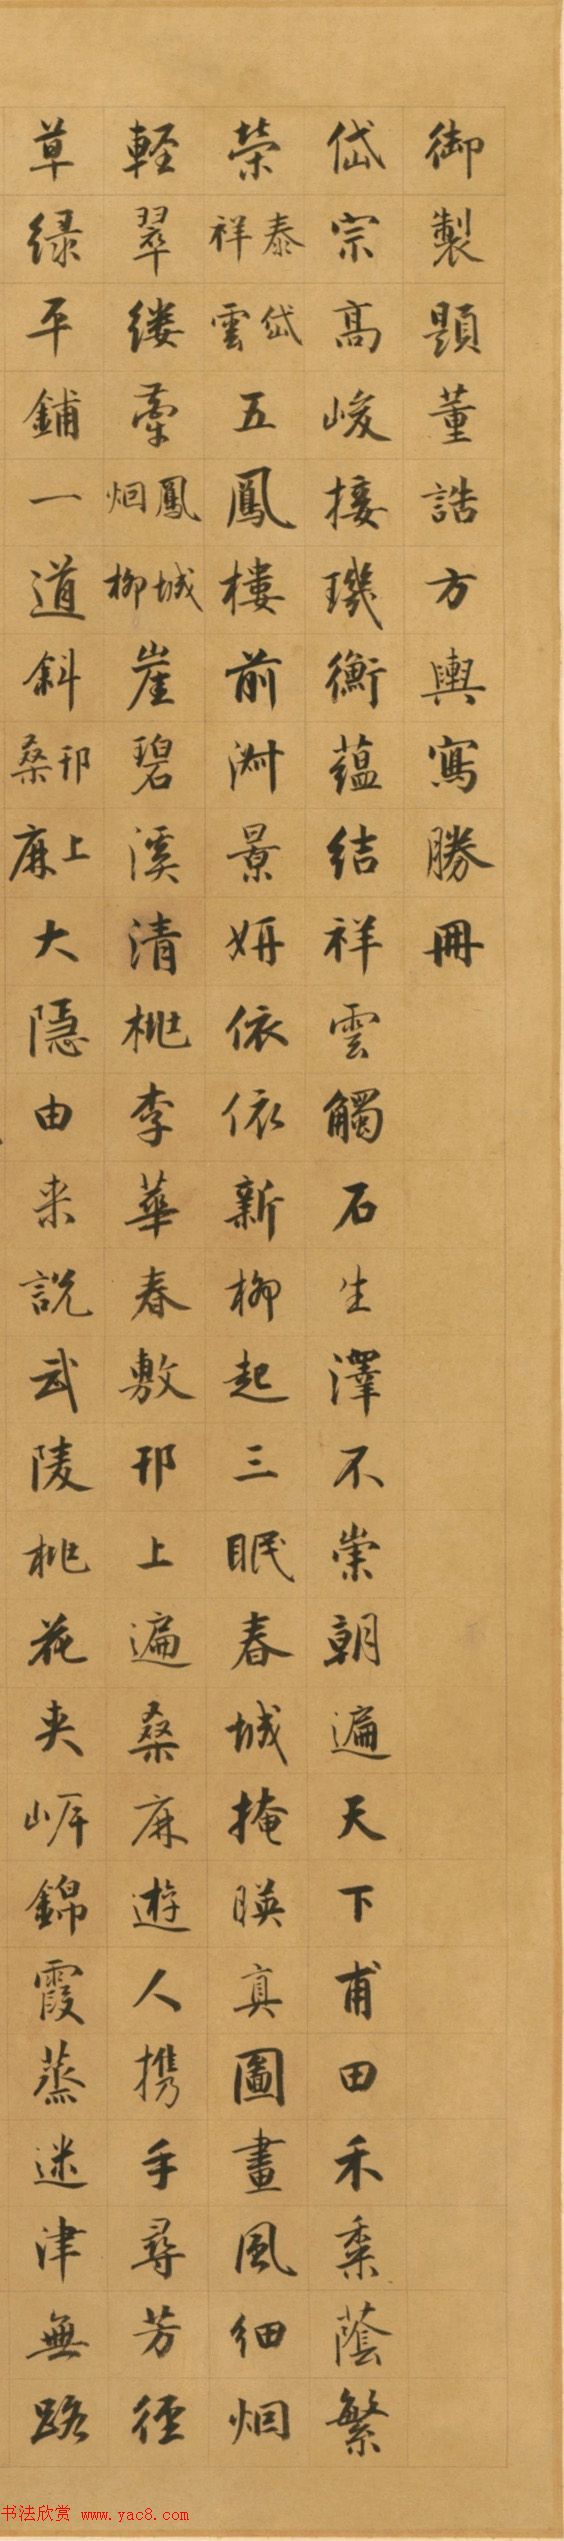 御製題董誥方輿寫勝冊
岱宗高峻接璣衡蘊結祥雲觸石生澤不崇朝遍天下甫田禾黍蔭繁
榮泰岱祥雲五鳳樓前淑景妍依依新柳起三眠春城掩暎真圖畫風細烟
輕翠縷牽鳳城烟柳崖碧溪清桃李華春敷邗上遍桑麻遊人攜手尋芳徑
草綠平鋪一道斜邗上桑麻大隱由来說武陵桃花夾崕錦霞蒸迷津無路
书法欣赏 www.yac8.com